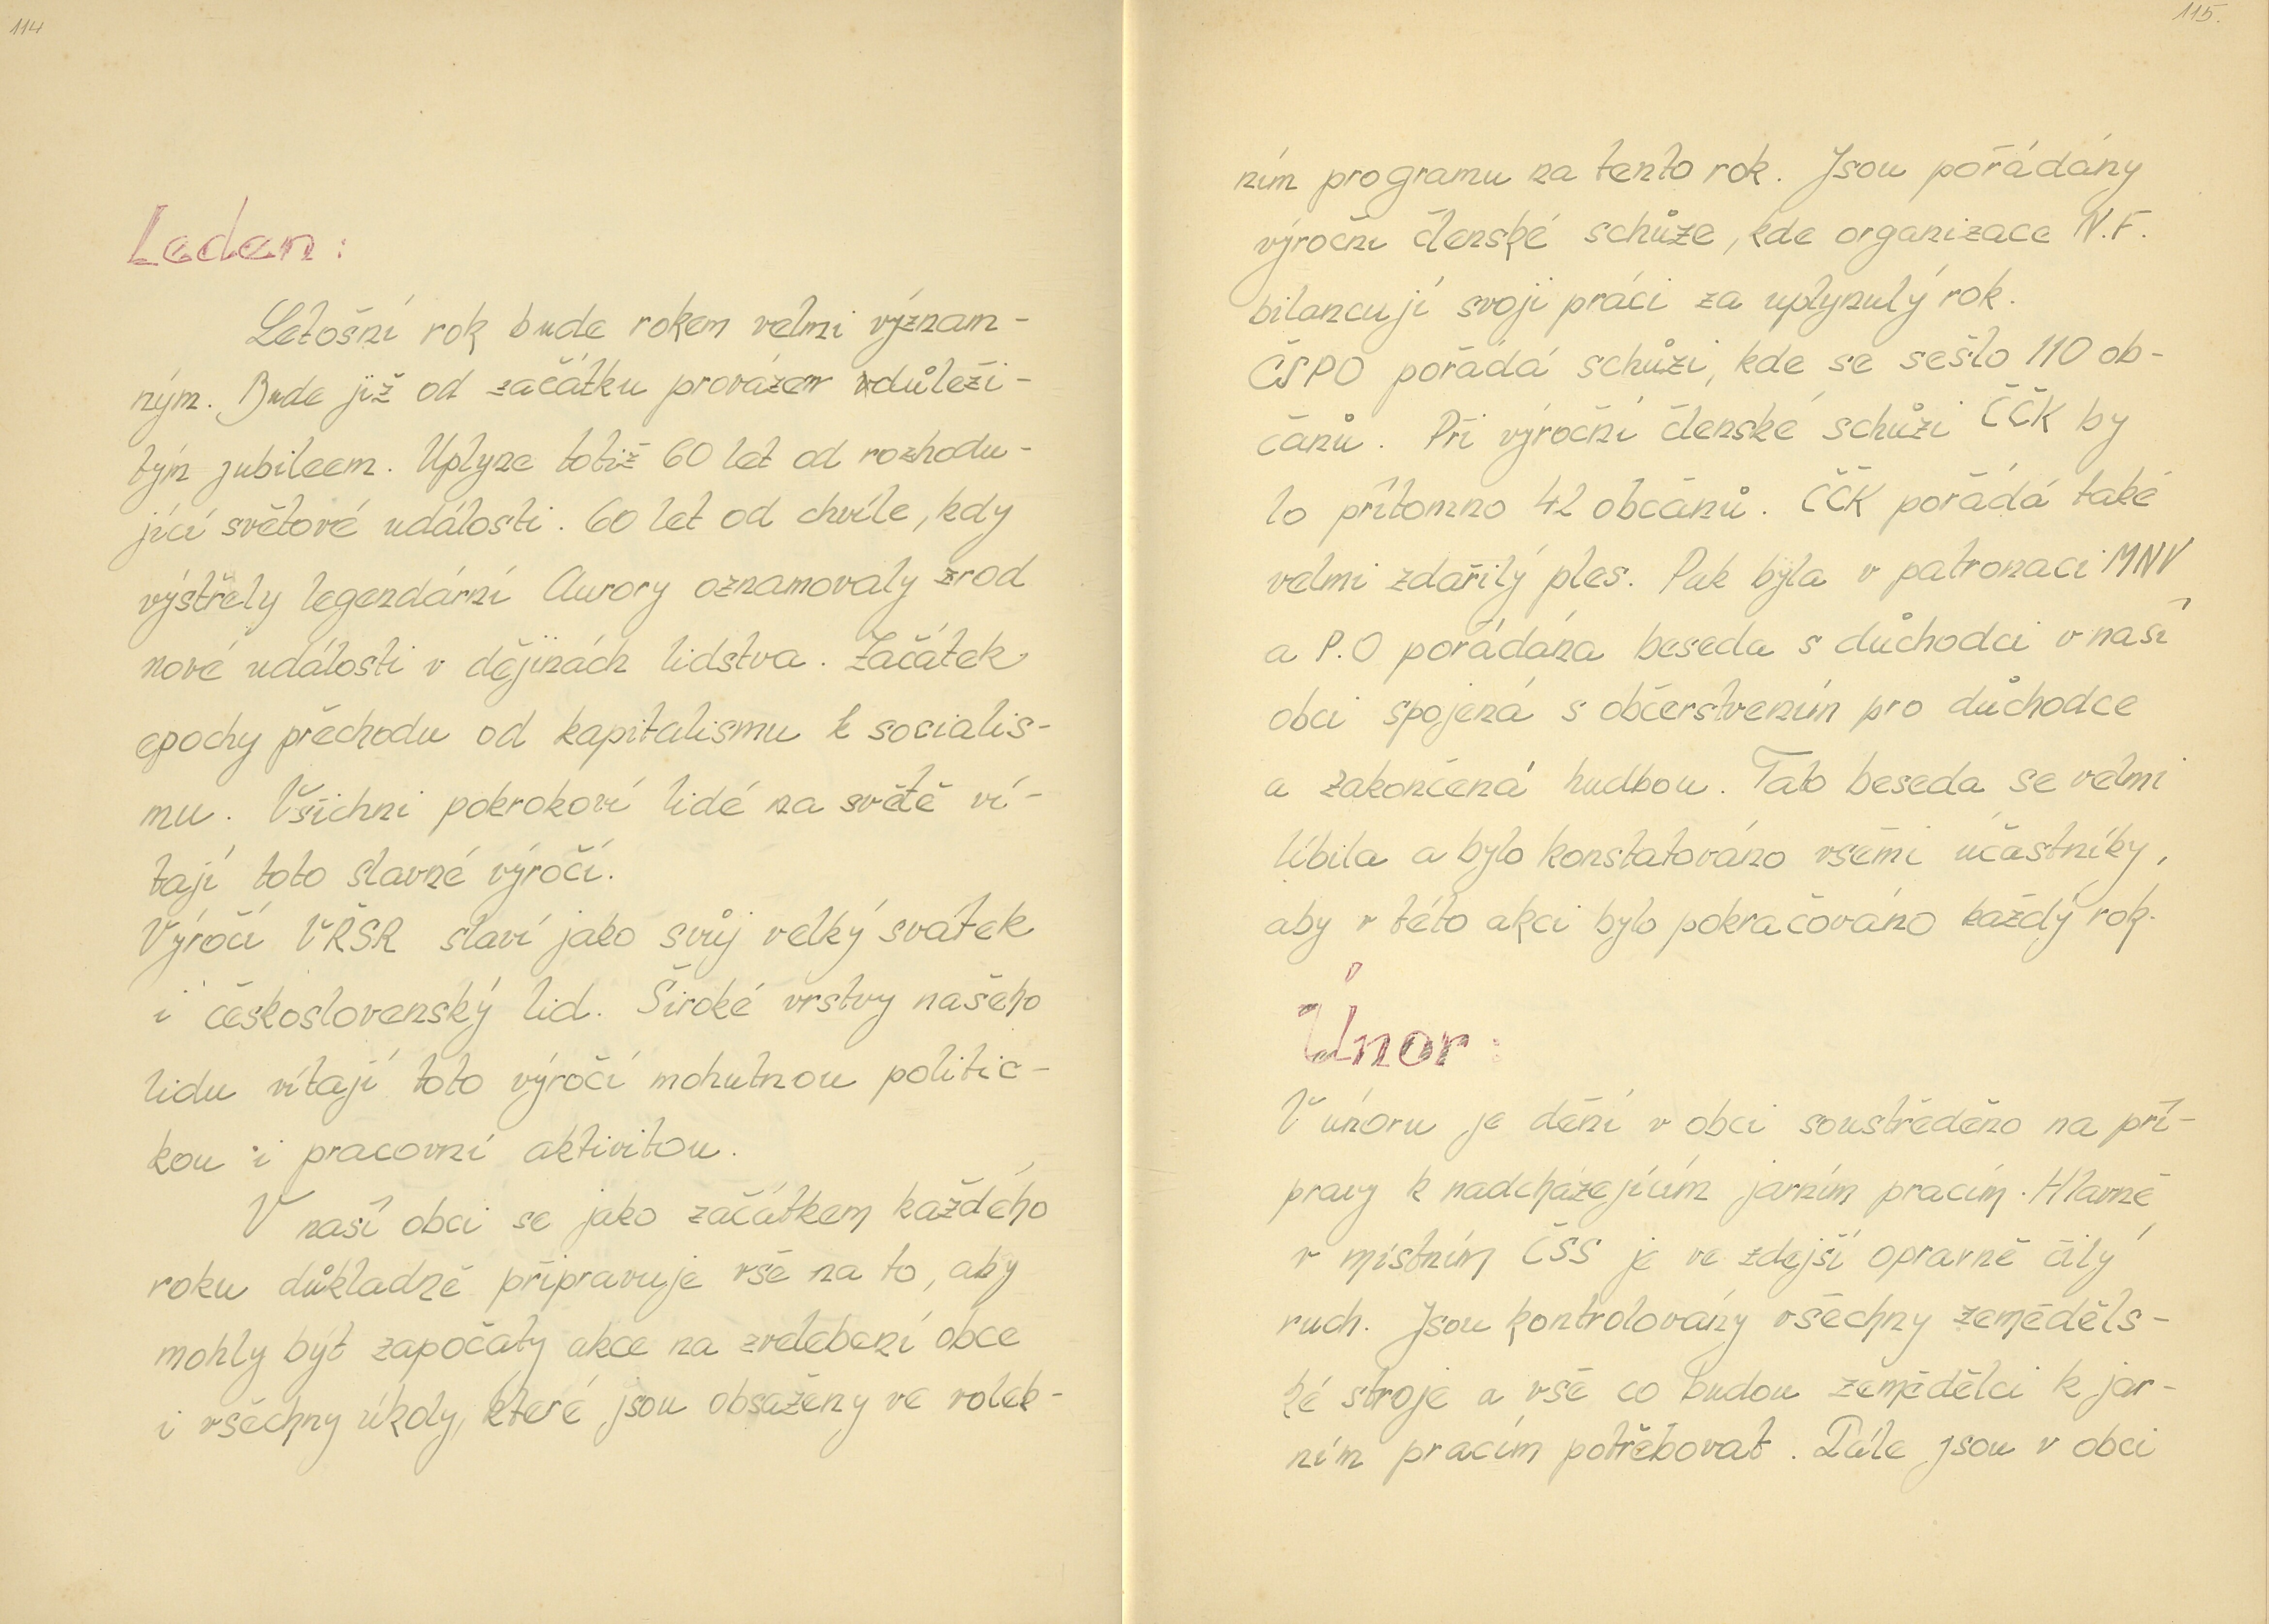 114
Leden:
Letošní rok bude rokem velmi význam-
ným. Bude již od začátku provázen důleži-
tým jubileem. Uplyne totiž 60 let od rozhodu-
jící světové události. 60 let od chvíle, kdy
výstřely legendární Aurory oznamovaly zrod
nové události v dějinách lidstva. Začátek
epochy přechodu od kapitalismu k socialis-
mu. Všichni pokrokoví lidé na světě ví-
tají toto slavné výročí.
Výročí VŘSR slaví jako svůj velký svátek
i československý lid. Široké vrstvy našeho
lidu vítají toto výročí mohutnou politic-
kou i pracovní aktivitou.
V naší obci se jako začátkem každého
roku důkladně připravuje vše na to, aby
mohly být započaty akce na zvelebení obce
i všechny úkoly, které jsou obsaženy ve voleb-
115.
ním programu na tento rok. Jsou pořádány
výroční členské schůze, kde organizace N.F.
bilancují svoji práci za uplynulý rok.
ČSPO pořádá schůzi, kde se sešlo 110 ob-
čanů. Při výroční členské schůzi ČČK by
lo přítomno 42 občanů. ČČK pořádá také
velmi zdařilý ples. Pak byla v patronaci MNV
a P.O pořádána beseda s důchodci v naší
obci spojená s občerstvením pro důchodce
a zakončená hudbou. Tato beseda se velmi
líbila a bylo konstatováno všemi účastníky,
aby v této akci bylo pokračováno každý rok.
Únor:
V únoru je dění v obci soustředěno na pří-
pravy k nadcházejícím jarním pracím. Hlavně
v místním ČSS je ve zdejší opravně čilý
ruch. Jsou kontrolovány všechny zeměděls-
ké stroje a vše co budou zemědělci k jar-
ním pracím potřebovat. Dále jsou v obci